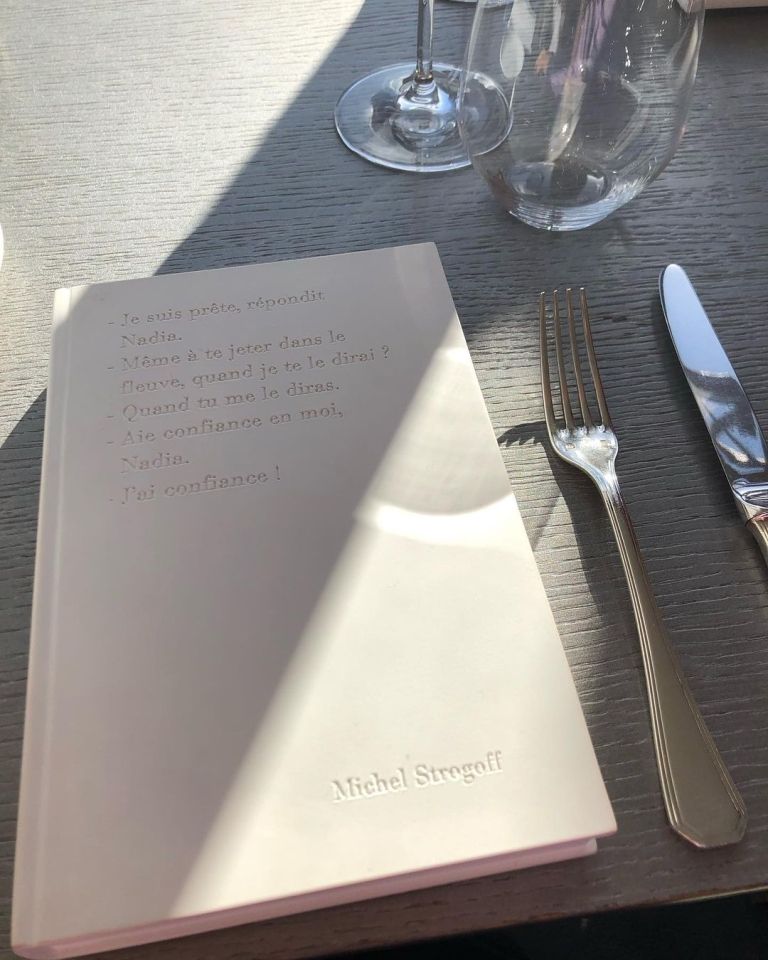 - Je suis prête, répondit
Nadia.
- Même à te jeter dans le
fleuve, quand je te le dirai ?
- Quand tu me le diras.
- Aie confiance en moi,
Nadia.
- J'ai confiance !
Michel Strogoff